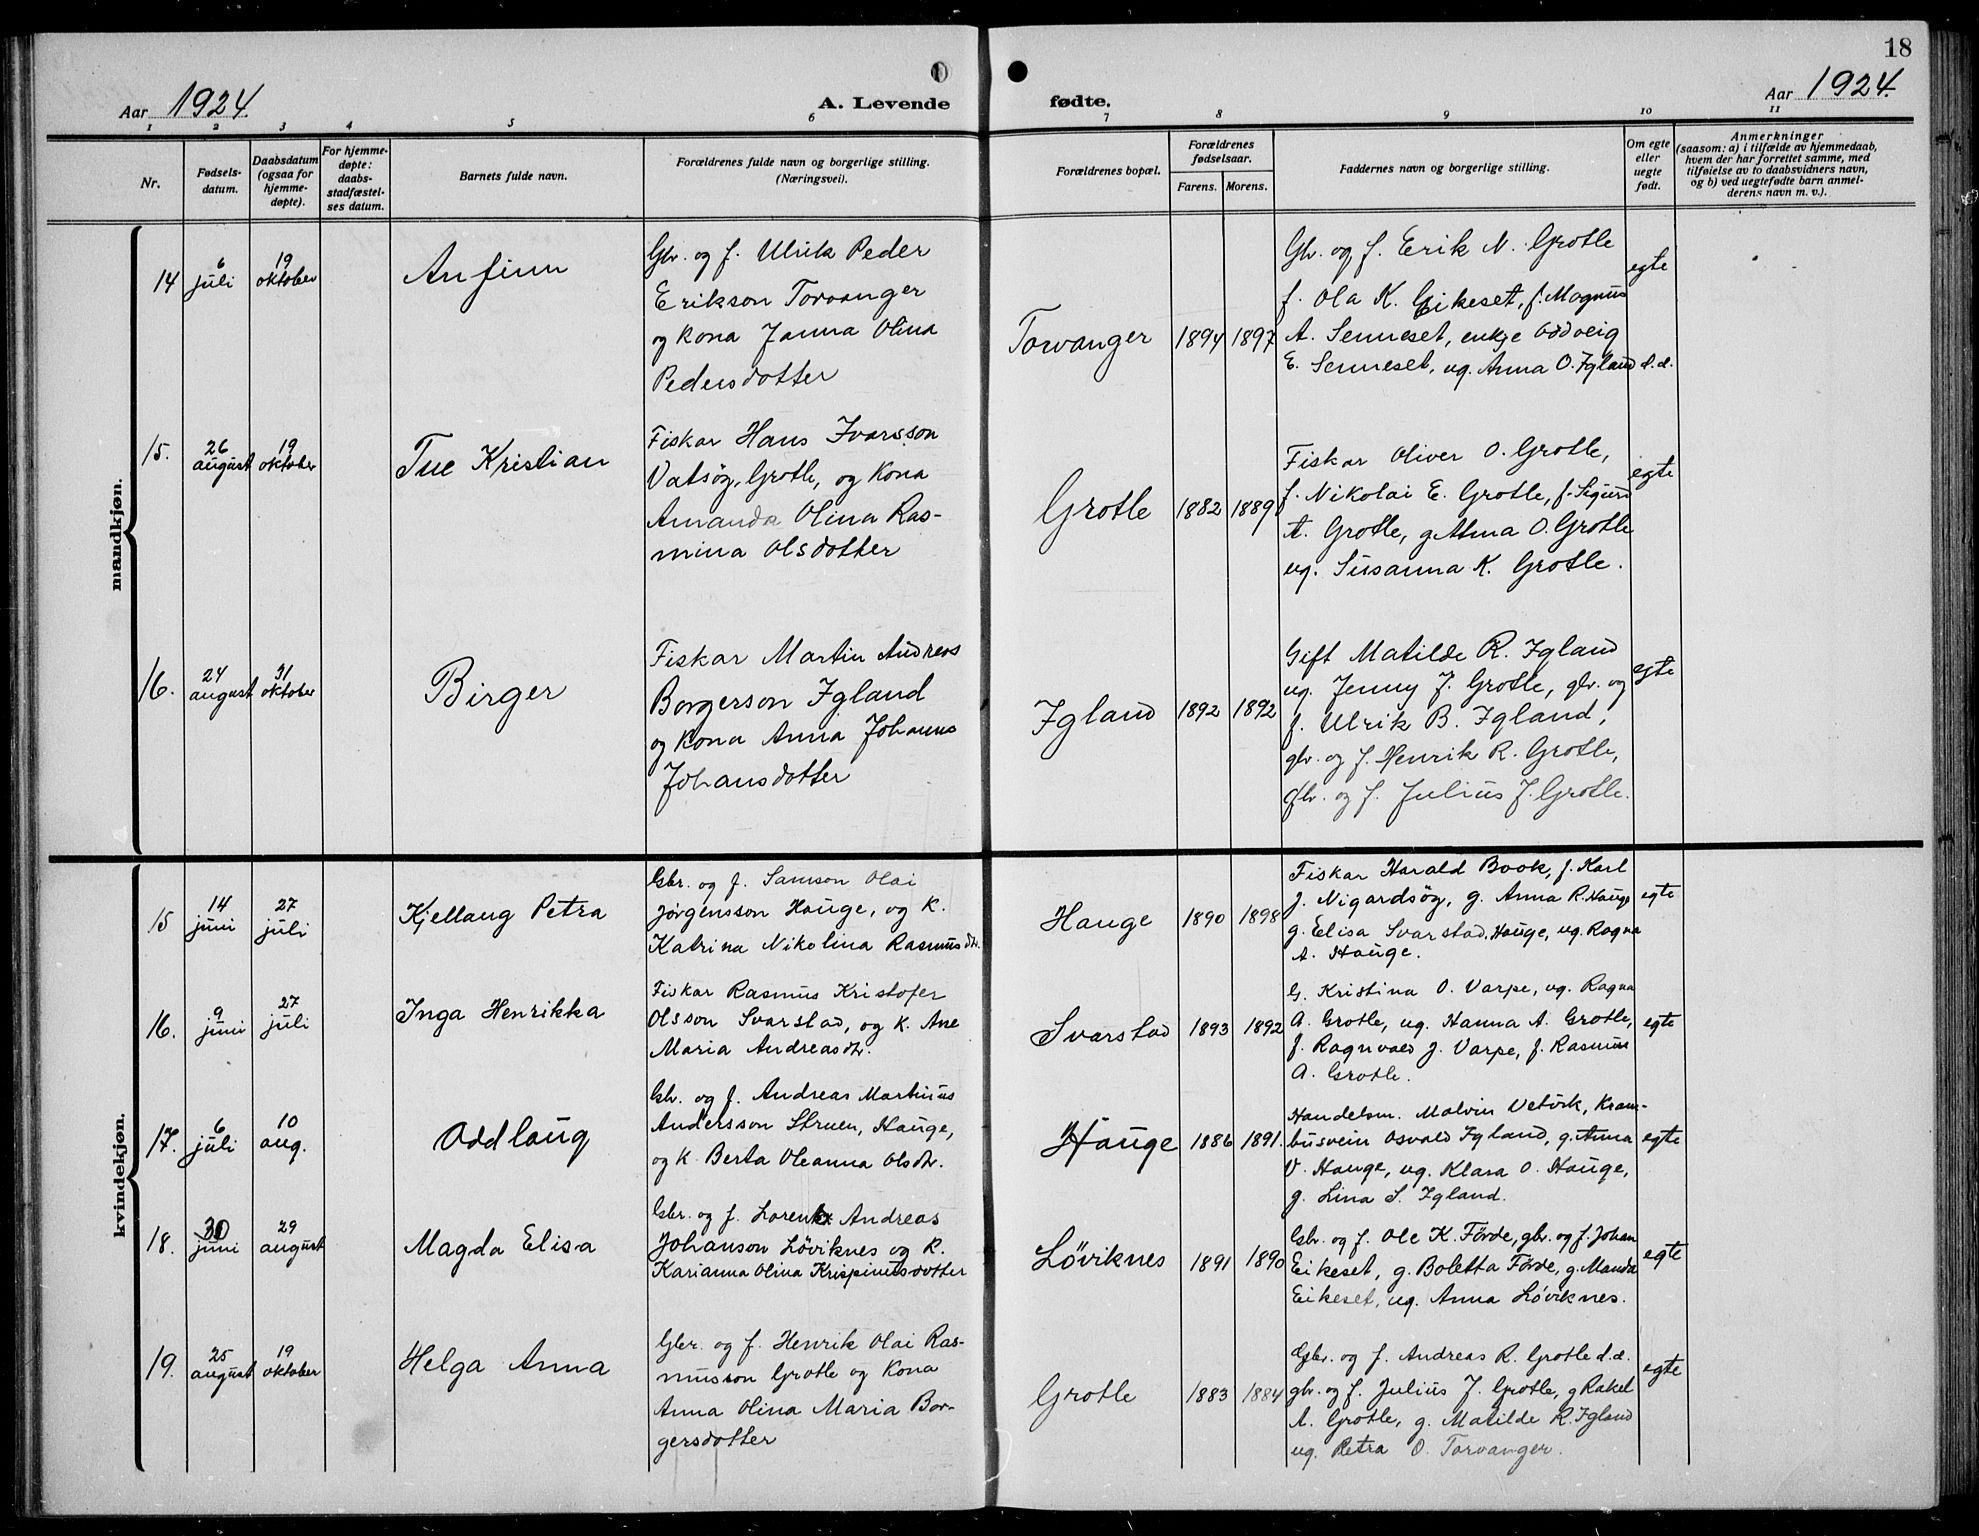 18
Aar 1924.
A. Levende
fødte.
Aar 1924.
1 2 3 4 5 6 7 8 9 10 11
Nr.
Fødsels-
datum.
Daabsdatum
(ogsaa for
hjemme-
døpte).
For hjemme-
døpte:
daabs-
stadfæstel-
ses datum.
Barnets fulde navn.
Forældrenes fulde navn og borgerlige stilling.
(Næringsvei).
Forældrenes bopæl.
Forældrenes
fødselsaar.
Farens. Morens.
Faddernes navn og borgerlige stilling.
Om egte
eller
uegte
født.
Anmerkninger
(saasom: a) i tilfælde av hjemmedaab,
hvem der har forrettet samme, med
tilføielse av to daabsvidners navn,
og b) ved uegtefødte barn anmel-
derens navn m. v.).
mandkjøn.
14
6
juli
19
oktober
Anfinn
Gbr. og f. Ulrik Peder
Erikson Torvanger
og kona Janna Olina
Pedersdotter
Torvanger
1894 1897
Gbr. og f. Erik N. Grotle
f. Ola K. Eikeset, f. Magnus
A. Senneset, enkje Oddveig
E. Senneset, ug. Anna O. Igland d.d.
egte
15.
26
august
19
oktober
Tue Kristian
Fiskar Hans Ivarsson
Vatsøy, Grotle, og kona
Amanda Olina Ras-
mina Olsdotter
Grotle
1882 1889
Fiskar Oliver O. Grotle,
f. Nikolai E. Grotle, f. Sigurd
A. Grotle, g. Anna O. Grotle
ug. Susanna K. Grotle.
egte
16.
24
august
31
oktober
Birger
Fiskar Martin Andreas
Borgerson Igland
og kona Anna Johanna
Johansdotter
Igland
1892 1892
Gift Matilde R. Igland
ug. Jenny J. Grotle, gbr. og
f. Ulrik B. Igland,
gbr. og f. Henrik R. Grotle,
Gbr. og f. Julius J. Grotle.
egte
kvindekjøn.
15
14
juni
27
juli
Kjellaug Petra
Gbr. og f. Samson Olai
Jørgensson Hauge, og k.
Katrina Nikolina Rasmusdtr.
Hauge
1890 1898
Fiskar Harald Book, f. Karl
J. Nigardsøy, g. Anna R. Hauge
g. Elisa Svarstad, Hauge, ug. Ragna
A. Hauge.
egte
16.
9
juni
27
juli
Inga Henrikka
Fiskar Rasmus Kristofer
Olsson Svarstad, og k. Ane
Maria Andreasdtr.
Svarstad
1893 1892
G. Kristina O. Varpe, ug. Ragna
A. Grotle, ug. Hanna A. Grotle,
f. Ragnvald J. Varpe, f. Rasmus
A. Grotle.
egte
17.
6
juli
10
aug.
Oddlaug
Gbr. og f. Andreas Martinus
Andersson Struen, Hauge,
og k. Berta Oleanna Olsdtr.
Hauge
1886 1891.
Handelsm. Malvin Vetvik, Kram-
busvein Osvald Igland, g. Anna
V. Hauge, ug. Klara O. Hauge,
g. Lina S. Igland.
egte
18.
30
juni
29
august
Magda Elisa
Gbr. og f. Lorentz Andreas
Johanson Løviknes og k.
Karianna Olina Krispinusdotter
Løviknes
1891 1890
Gbr. og f. Ole K. Förde, gbr. og f. Johan
Eikeset, g. Boletta Förde, g. Manda
Eikeset, ug. Anna Løviknes.
egte
19.
25
august
19
oktober
Helga Anna
Gbr. og f. Henrik Olai Ras-
musson Grotle og kona
Anna Olina Maria Bor-
gersdotter
Grotle
1883 1884
Gbr. og f. Andreas R. Grotle d.d.
gbr. og f. Julius J. Grotle, g Rakel
A. Grotle, g. Matilde R. Igland
ug. Petra O. Torvanger.
egte